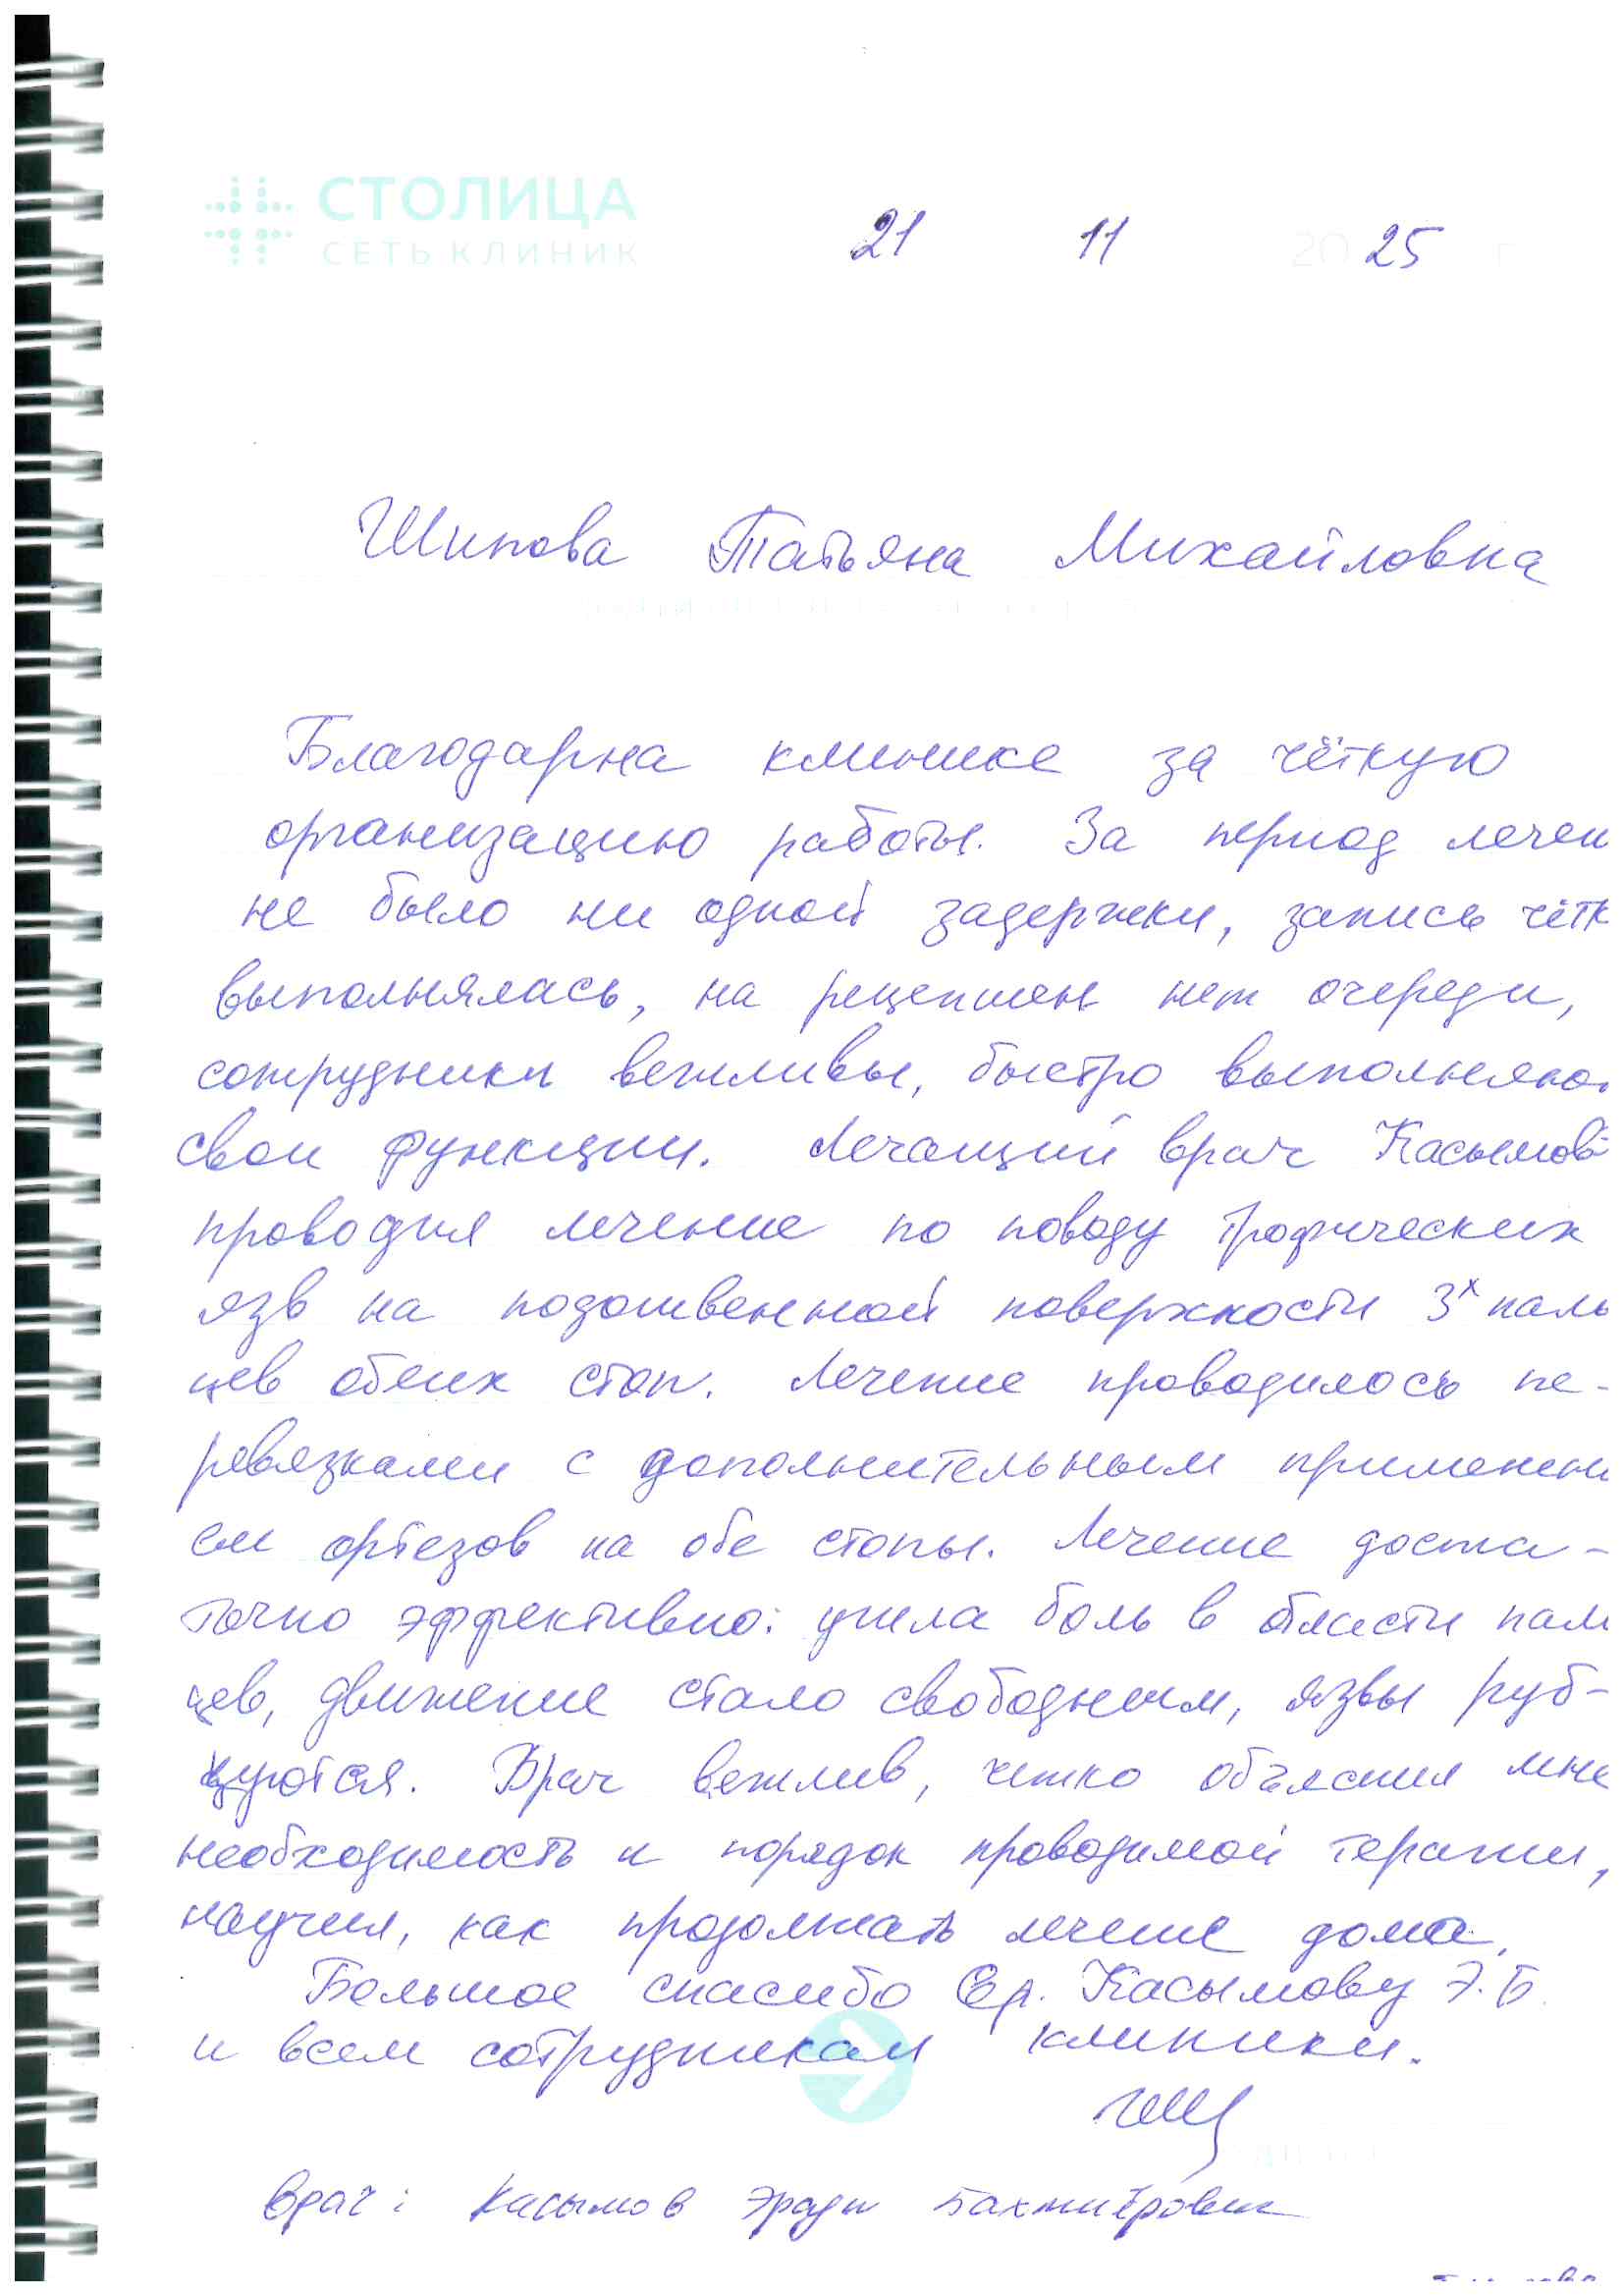 СТОЛИЦА
СЕТЬ КЛИНИК
21 11 2025 г
Шипова Татьяна Михайловна
Благодарна клинике за чёткую
организацию работы. За период лечен
не было ни одной задержки, запись чётк
выполнялась, на рецепшене нет очереди,
сотрудники вежливы, быстро выполняю
свои функции. Лечащий врач Касымов
проводил лечение по поводу трофических
язв на подошвенной поверхности 3х паль
цев обеих стоп. Лечение проводилось пе-
ревязками с дополнительным применени
ем ортезов на обе стопы. Лечение доста-
точно эффективно: ушла боль в области паль
цев, движение стало свободным, язвы руб-
цуются. Врач вежлив, четко объяснил мне
необходимость и порядок проводимой терапии,
научил, как продолжать лечение дома.
Большое спасибо др. Касымову Э.Б.
и всем сотрудникам клиники.
Врач: Касымов